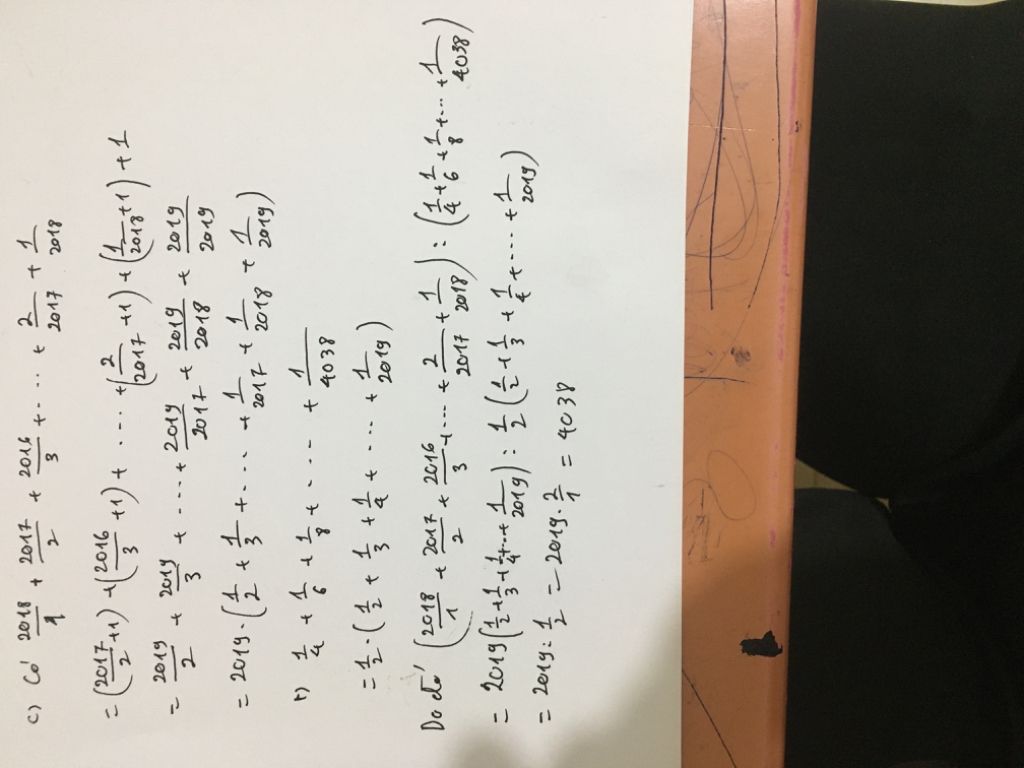 c) Có 2018/1 + 2017/2 + 2016/3 + ... + 2/2017 + 1/2018
= (2017/2 + 1) + (2016/3 + 1) + ... + (2/2017 + 1) + (1/2018 + 1) + 1
= 2019/2 + 2019/3 + .... + 2019/2017 + 2019/2018 + 2019/2019
= 2019 . (1/2 + 1/3 + ... + 1/2017 + 1/2018 + 1/2019)
1/4 + 1/6 + 1/8 + .... + 1/4038
= 1/2 . (1/2 + 1/3 + 1/4 + ... + 1/2019)
Do đó (2018/1 + 2017/2 + 2016/3 + ... + 2/2017 + 1/2018) : (1/4 + 1/6 + 1/8 + ... + 1/4038)
= 2019 (1/2 + 1/3 + 1/4 + ... + 1/2019) : 1/2 (1/2 + 1/3 + 1/4 + .... + 1/2019)
= 2019 : 1/2 = 2019 . 2/1 = 4038